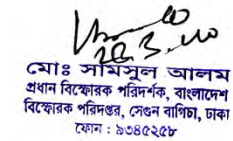 মোঃ সামসুল আলম
প্রধান বিস্ফোরক পরিদর্শক, বাংলাদেশ
বিস্ফোরক পরিদপ্তর, সেগুন বাগিচা, ঢাকা
ফোন : ৯৩৪৫২৫৮